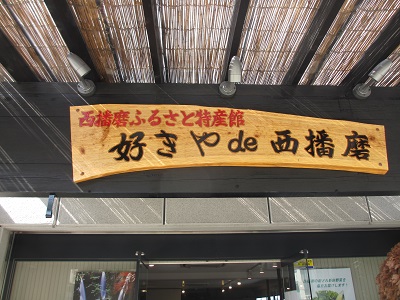 西播磨ふるさと特産館
好きやde西播磨